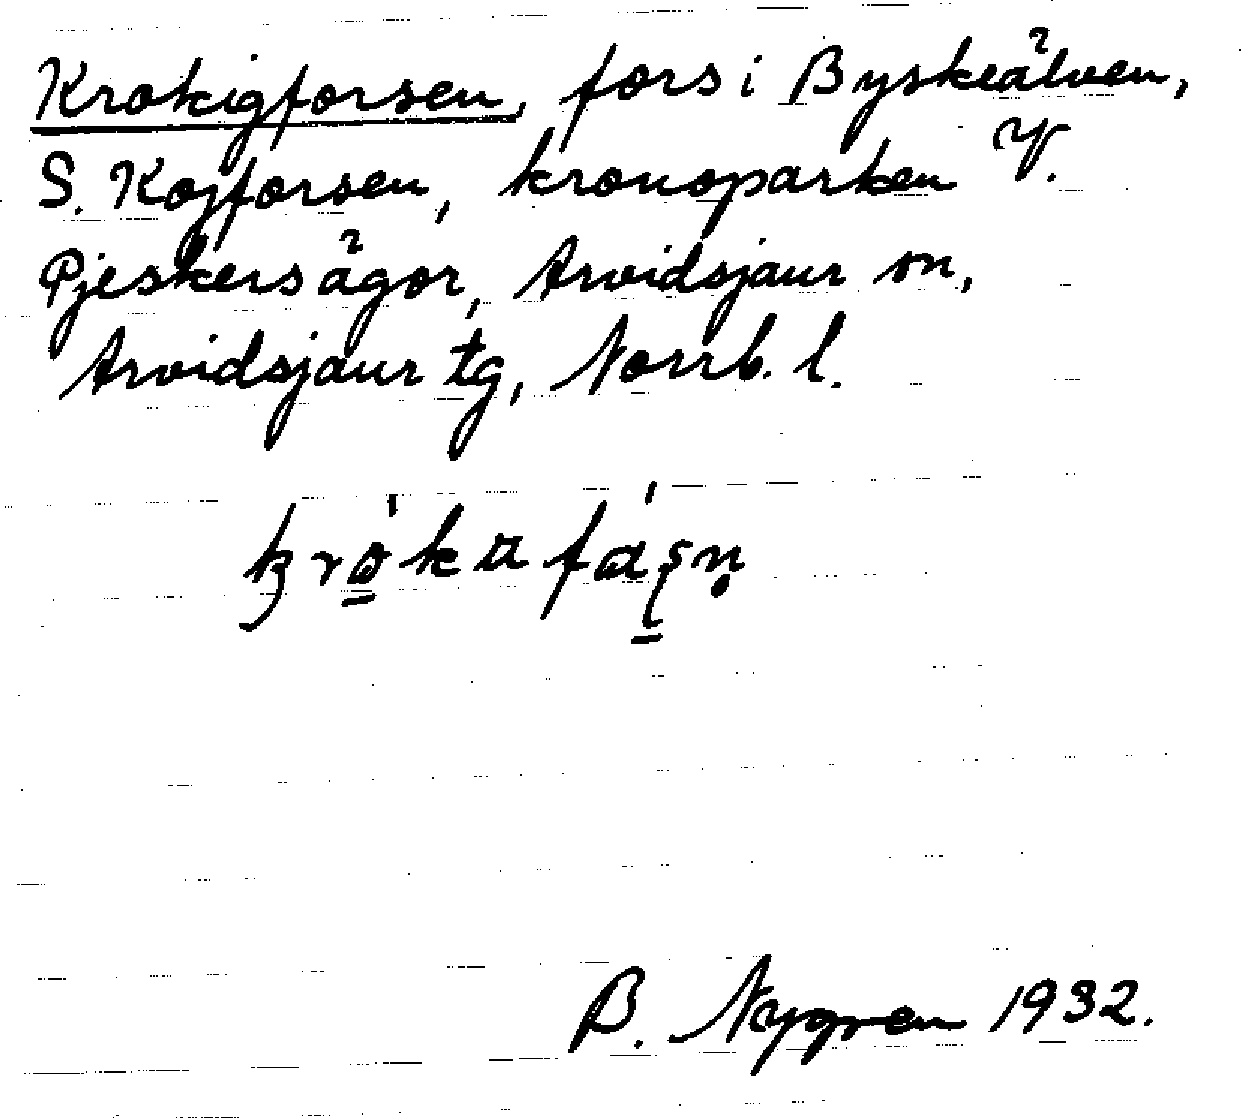 Krokigforsen, fors i Byskeälven,
S. Kojforsen, kronoparken V.
Pjeskersägor, Arvidsjaur sn,
Arvidsjaur tg, Norrb. l.
B. Nygren 1932.